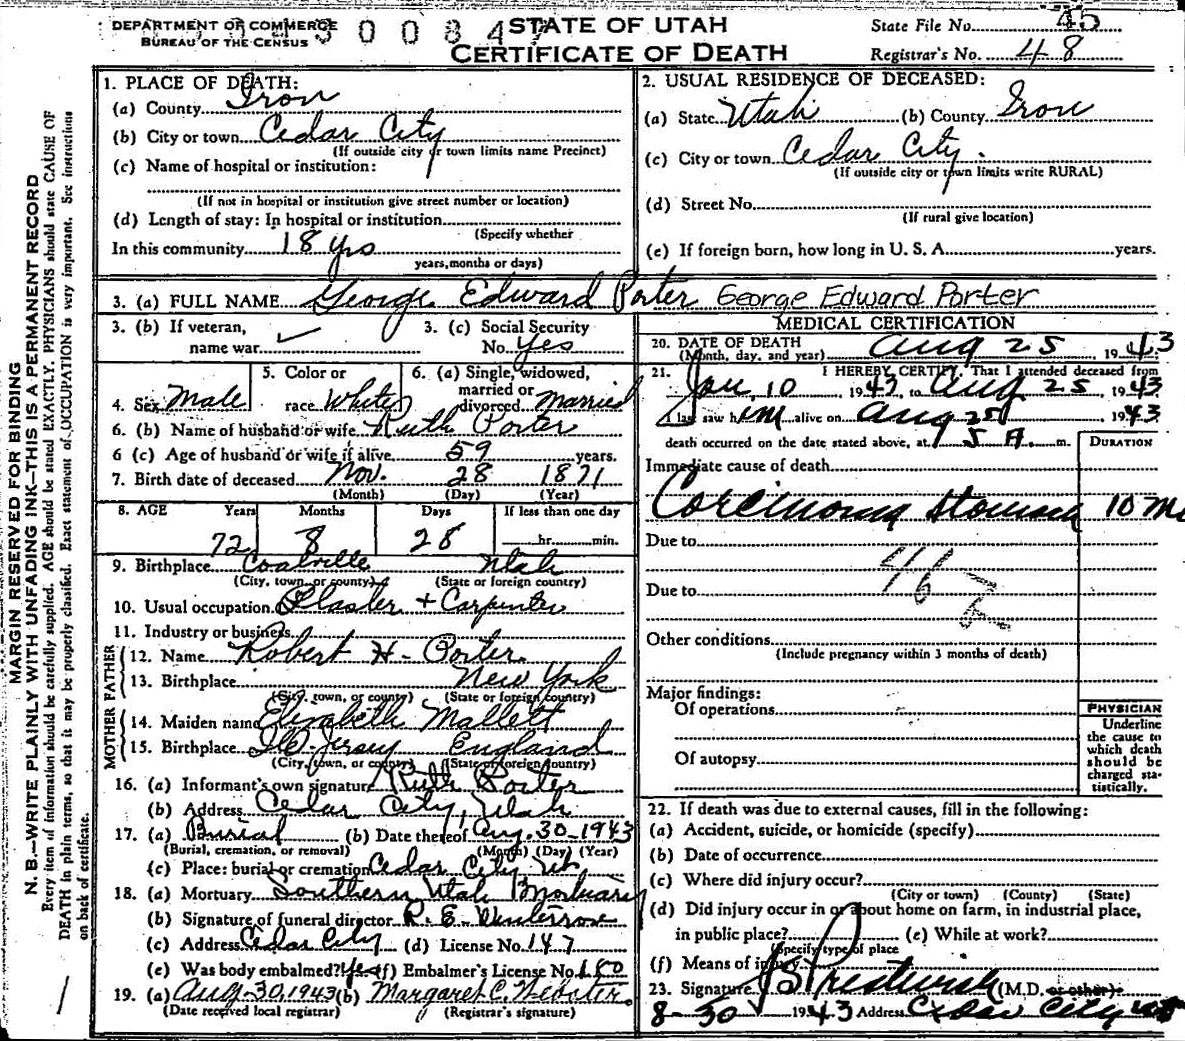 DEPARTMENT OF COMMERCE
BUREAU OF THE CENSUS
STATE OF UTAH
CERTIFICATE OF DEATH
State File No. 45
Registrar's No. 48
MARGIN RESERVED FOR BINDING
N. B.—WRITE PLAINLY WITH UNFADING INK—THIS IS A PERMANENT RECORD
Every item of information should be carefully supplied. AGE should be stated EXACTLY. PHYSICIANS should state CAUSE OF
DEATH in plain terms, so that it may be properly classified. Exact statement of OCCUPATION is very important. See instructions
on back of certificate.
1. PLACE OF DEATH:
(a) County Iron
(b) City or town Cedar City
(If outside city or town limits name Precinct)
(c) Name of hospital or institution:
(If not in hospital or institution give street number or location)
(d) Length of stay: In hospital or institution
(Specify whether
In this community 18 yrs
years, months or days)
2. USUAL RESIDENCE OF DECEASED:
(a) State Utah (b) County Iron
(c) City or town Cedar City.
(If outside city or town limits write RURAL)
(d) Street No.
(If rural give location)
(e) If foreign born, how long in U. S. A. years.
3. (a) FULL NAME George Edward Porter George Edward Porter
3. (b) If veteran,
name war
3. (c) Social Security
No. Yes
4. Sex Male
5. Color or
race White
6. (a) Single, widowed,
married or
divorced Married
6. (b) Name of husband or wife Ruth Porter
6 (c) Age of husband or wife if alive 59 years.
7. Birth date of deceased Nov. 28 1871
(Month) (Day) (Year)
8. AGE Years Months Days If less than one day
72 8 28 hr. min.
9. Birthplace Coalville Utah
(City, town, or county) (State or foreign country)
10. Usual occupation Plaster + Carpenter
11. Industry or business
FATHER
12. Name Robert H. Porter
13. Birthplace New York
(City, town, or county) (State or foreign country)
MOTHER
14. Maiden name Elizabeth Mallett
15. Birthplace Jersey England
(City, town, or county) (State or foreign country)
16. (a) Informant's own signature Ruth Porter
(b) Address Cedar City, Utah
17. (a) Burial (b) Date thereof Aug. 30-1943
(Burial, cremation, or removal) (Month) (Day) (Year)
(c) Place: burial or cremation Cedar City Ut
18. (a) Mortuary Southern Utah Mortuary
(b) Signature of funeral director R. E.
(c) Address Cedar City (d) License No. 147
(e) Was body embalmed? Yes (f) Embalmer's License No. 180
19. (a) Aug-30, 1943 (b) Margaret C. Webster.
(Date received local registrar) (Registrar's signature)
MEDICAL CERTIFICATION
20. DATE OF DEATH
(Month, day, and year) Aug 25, 1943
21. I HEREBY CERTIFY, That I attended deceased from
Jan 10 1943, to Aug 25 1943
I last saw him alive on Aug 25 1943
death occurred on the date stated above, at A. m.
DURATION
Immediate cause of death
Carcinoma Stomach 10 Mo
Due to
46
Due to
Other conditions
(Include pregnancy within 3 months of death)
Major findings:
Of operations
Of autopsy
PHYSICIAN
Underline
the cause to
which death
should be
charged sta-
tistically.
22. If death was due to external causes, fill in the following:
(a) Accident, suicide, or homicide (specify)
(b) Date of occurrence
(c) Where did injury occur?
(City or town) (County) (State)
(d) Did injury occur in or about home on farm, in industrial place,
in public place? (e) While at work?
(Specify type of place
(f) Means of injury
23. Signature J S Prestwich (M.D. or other)
8-30 1943 Address Cedar City Ut